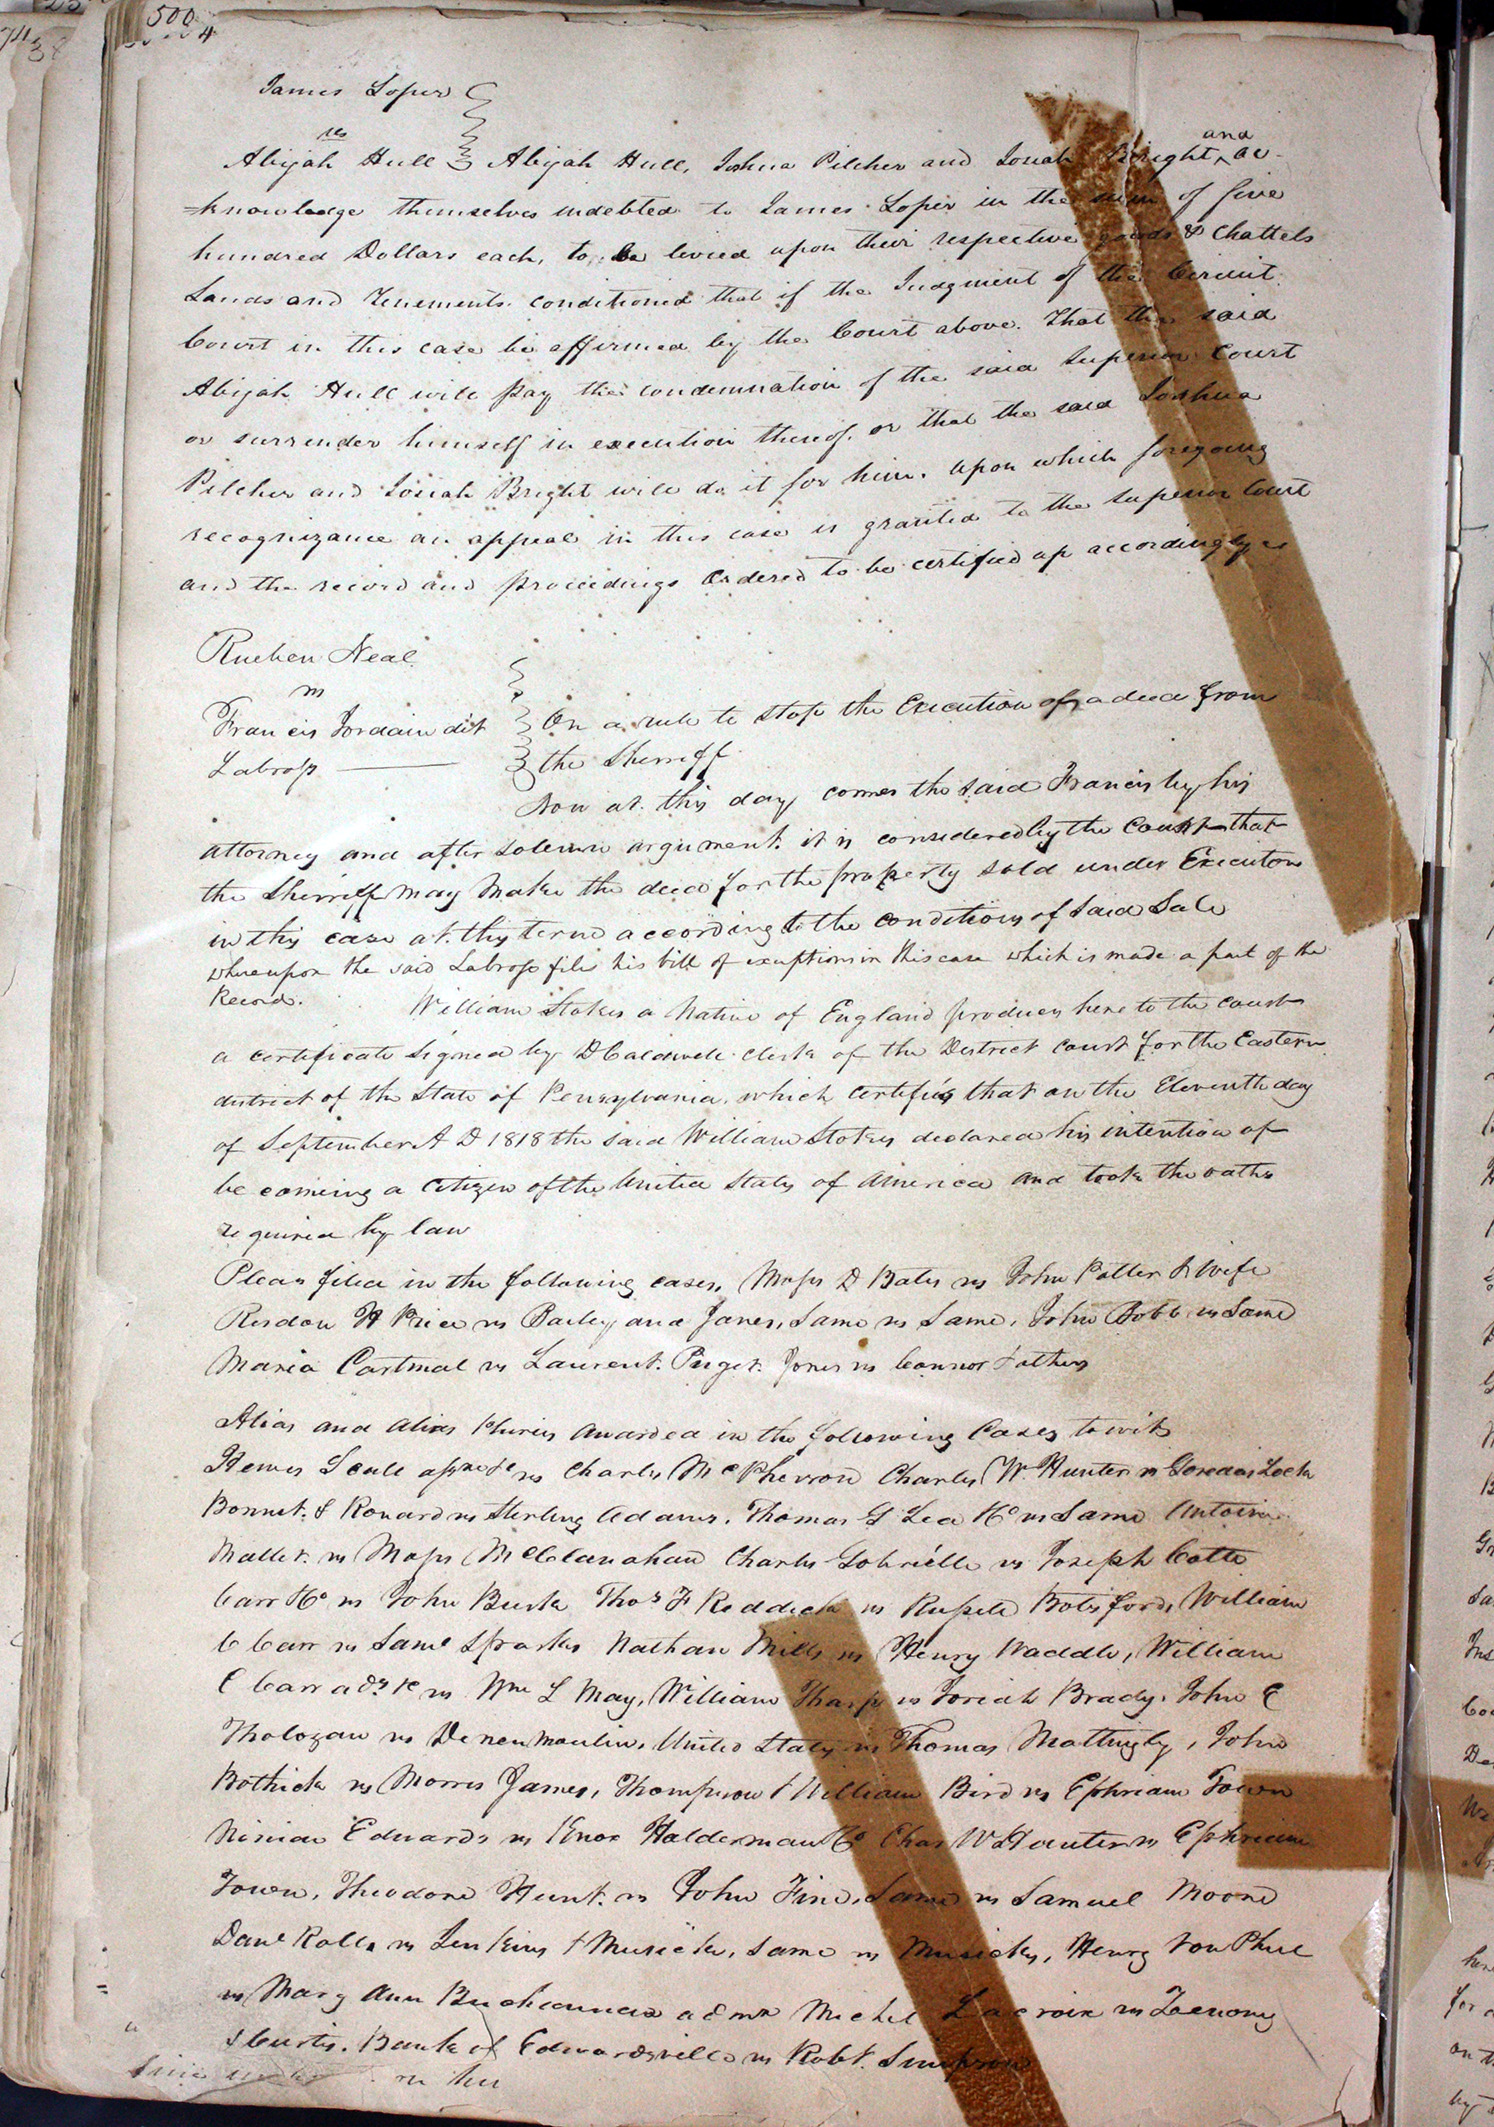 500
4
James Loper
vs
Abijah Hull Abijah Hull, Joshua Pilcher and Josiah Bright, and ac-
=knowledge themselves indebted to James Loper in the sum of five
hundred Dollars each, to be levied upon their respective goods & Chattels
Lands and Tenements. conditioned that if the Judgment of the Circuit
Court in this case be affirmed by the Court above. That the said
Abijah Hull will pay the condemnation of the said Superior Court
or surrender himself in execution thereof. or that the said Joshua
Pilcher and Josiah Bright will do it for him. upon which foregoing
recognizance an appeal in this case is granted to the Superior Court
and the record and proceedings Ordered to be certified up accordingly
Rueben Neal
vs
Francis Jordain dit On a rule to stop the Execution of a deed from
Labross the Sherriff
Now at this day comes the said Francis by his
attorney and after solemn argument. it is considered by the Court that
the Sherriff may make the deed for the property sold under Execution
in this case at this term according to the conditions of said Sale
whereupon the said Labross files his bill of exceptions in this case which is made a part of the
Record. William Stokes a Native of England produces here to the court
a certificate signed by D Caldwell clerk of the District court for the Eastern
district of the State of Pensylvania. which certifies that on the Eleventh day
of September A D 1818 the said William Stokes declared his intention of
becoming a Citizen of the United States of America and took the oaths
required by law
Pleas filed in the following cases, Moses D Bates vs John Potter & Wife
Risdon H Price vs Bailey and Jones, Same vs Same, John Bobb vs Same
Maria Cartmal vs Laurent Puget. Jones vs Connor & others
Alias and alias Pluries awarded in the following Cases to wit
Charles McPherron Charles W. Hunter vs
Bonnet & Ronard vs Sterling Adams. Thomas G Lea &Co vs Same Antoine
Mallet vs Moses McClanahan Charles Gobrielle vs Joseph Cotte
Carr &Co vs John Burk Thos F Reddick vs Russell Botsford, William
C Carr vs Saml Sparks Nathan Mills vs Henry Waddle, William
C Carr vs Wm L May, William Tharp vs Josiah Brady. John E
Tholozan vs Denoumoulin, United States vs Thomas Mattingly, John
Bothick vs Morris James, Thompson & William Bird vs Ephriam Town
Ninian Edwards vs Knox Halderman &Co Chas W Hunter vs Ephriam
Town, Theodore Hunt vs John Fine, Same vs Samuel Moore
Danl Ralls vs Jenkins & Musick, Same vs Musicks, Henry Von Phul
vs Mary Ann admx Michel Lacroix vs
& Curtis. Bank of Edwardsville vs Robt. Simpson